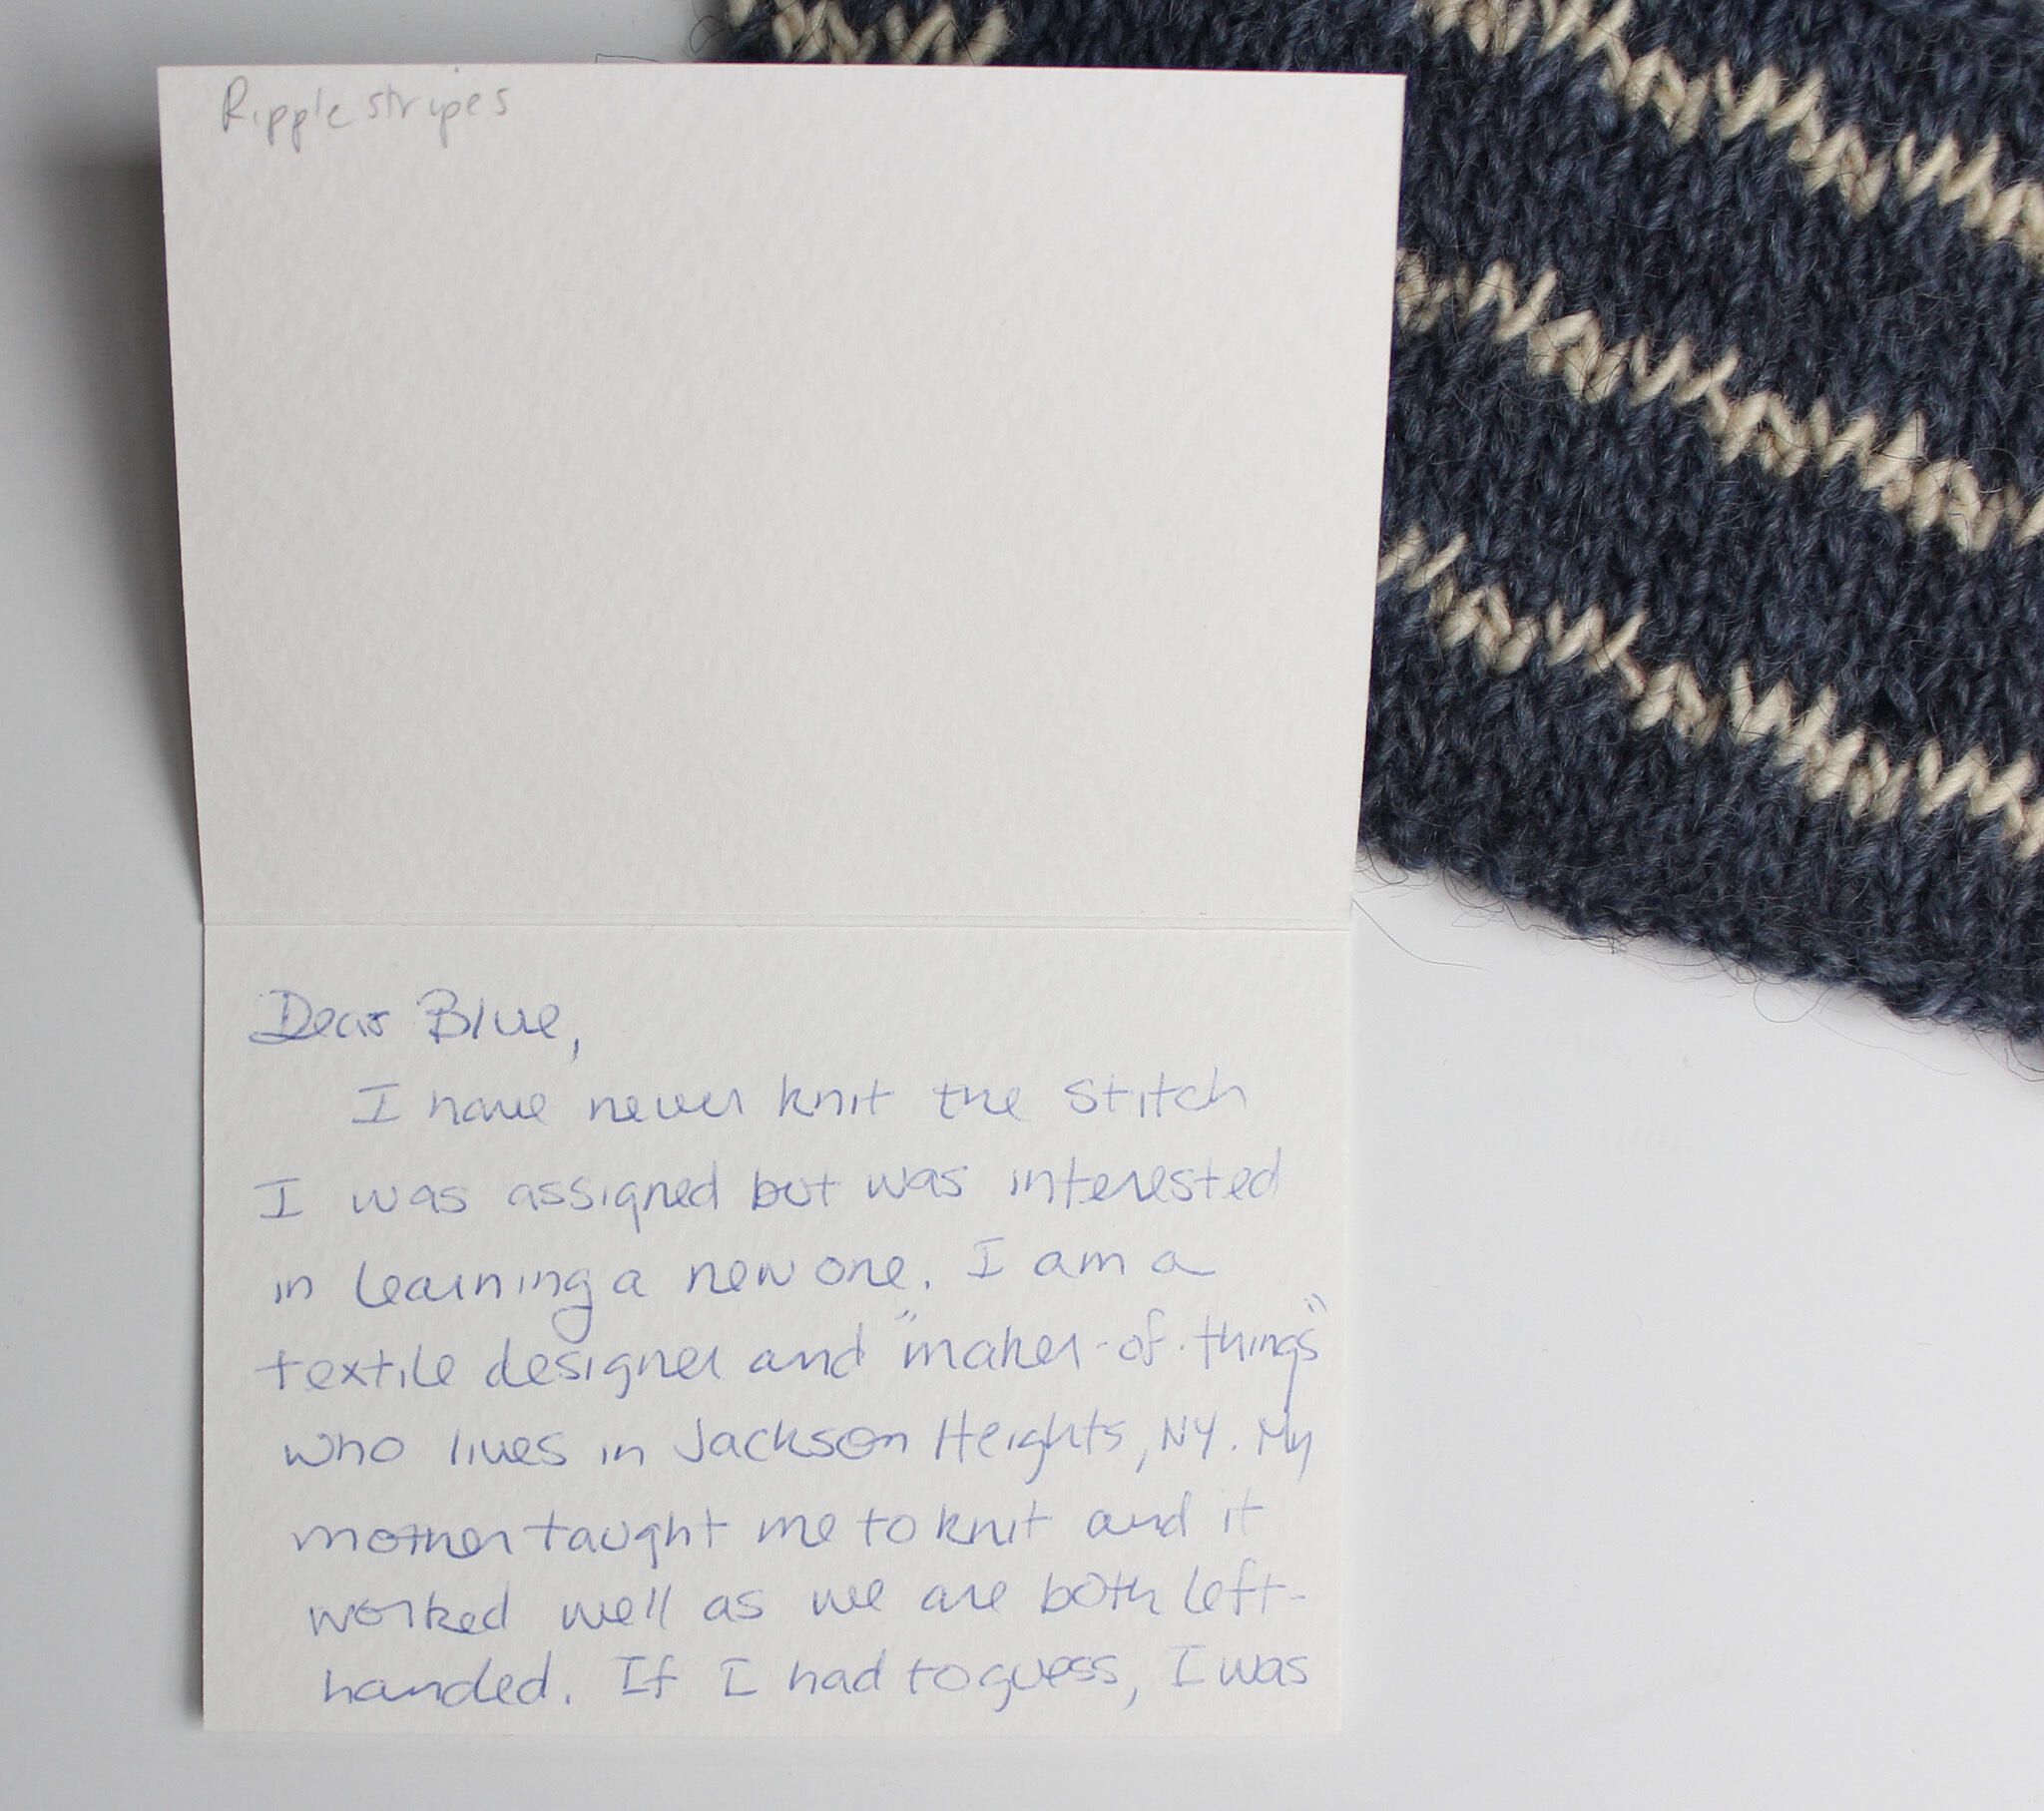 Ripple stripes
Dear Blue,
I have never knit the stitch
I was assigned but was interested
in learning a new one. I am a
textile designer and "maker-of-things"
who lives in Jackson Heights, NY. My
mother taught me to knit and it
worked well as we are both left-
handed. If I had to guess, I was